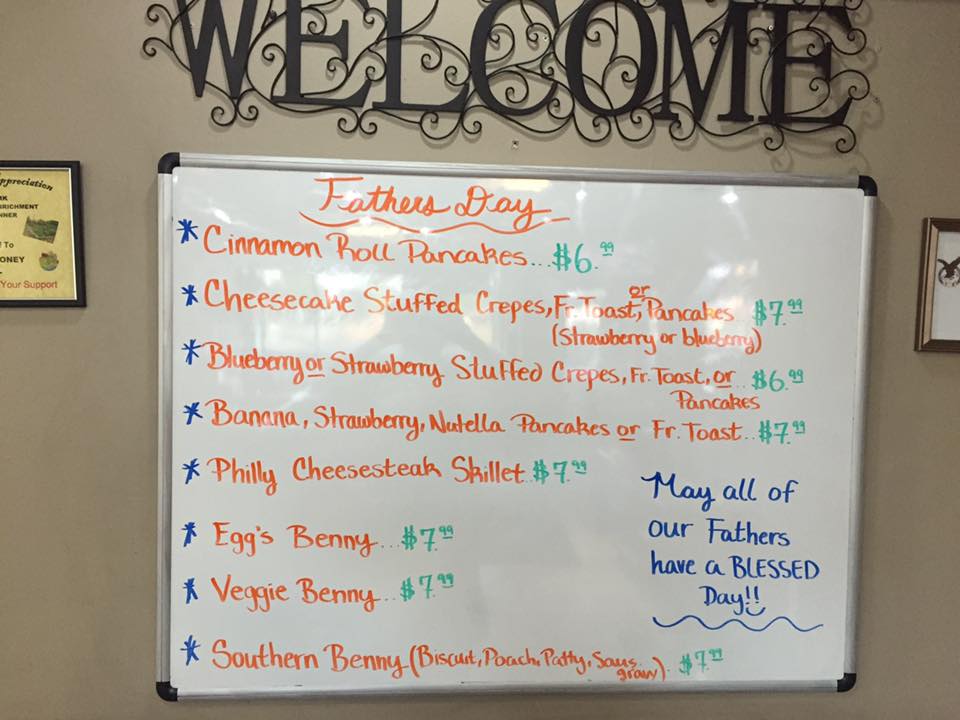 WELCOME
Appreciation
RICHMENT
NNER
To
ONEY
Your Support
Fathers Day
* Cinnamon Roll Pancakes...$6.99
* Cheesecake Stuffed Crepes, Fr. Toast, or Pancakes $7.99
(strawberry or blueberry)
* Blueberry or Strawberry Stuffed Crepes, Fr. Toast, or... $6.99
Pancakes
* Banana, Strawberry, Nutella Pancakes or Fr. Toast..$7.99
* Philly Cheesesteak Skillet..$7.99
* Egg's Benny...$7.99
* Veggie Benny...$7.99
* Southern Benny (Biscuit, Poach, Patty, Saus. gravy).$7.99
May all of
our Fathers
have a BLESSED
Day!!